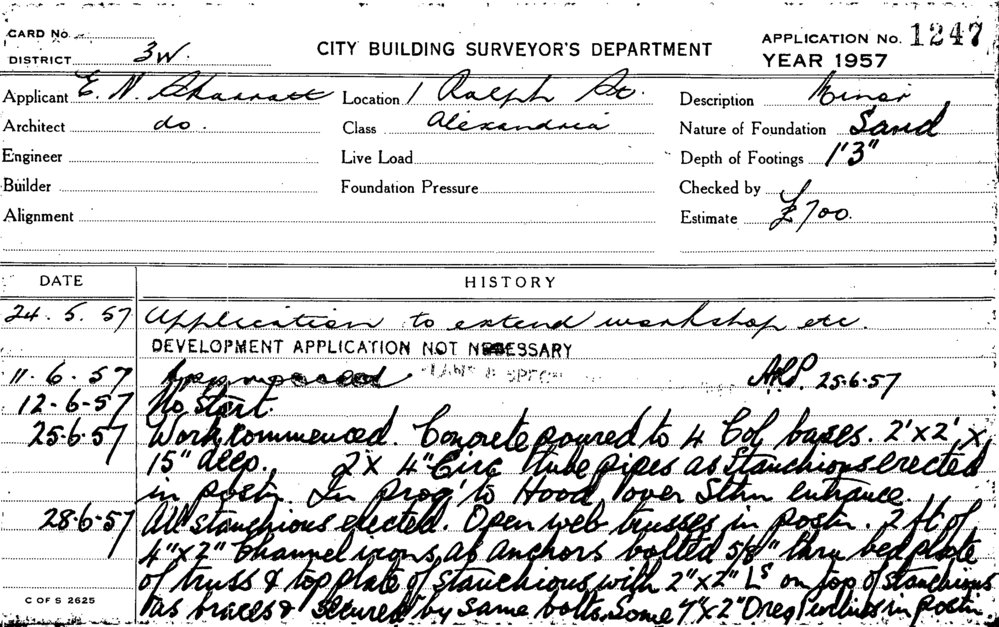 CARD No.
DISTRICT 3W.
CITY BUILDING SURVEYOR'S DEPARTMENT
APPLICATION No. 1247
YEAR 1957
Applicant E. N. Sharratt Location 1 Ralph St. Description Minor
Architect do. Class Alexandria Nature of Foundation Sand
Engineer Live Load Depth of Footings 1'3"
Builder Foundation Pressure Checked by
Alignment Estimate £700.
DATE HISTORY
24. 5. 57 Application to extend workshop etc.
DEVELOPMENT APPLICATION NOT NECESSARY
11. 6. 57 Approved PLANS & SPEC 25-6-57
12-6-57 No start.
25-6-57 Work commenced. Concrete poured to 4 Col bases. 2'x2' x
15" deep. 2 x 4" Circ tube pipes as stanchions erected
in postn. In prog' to Hood over Sthn entrance.
28-6-57 All stanchions erected. Open web trusses in postn. 2 ft of
4"x2" Channel irons, as anchors bolted 5/8" thru bed plate
of truss & top plate of stanchions with 2"x2" Ls on top of stanchions
as braces & secured by same bolts. Some 4"x2" Oreg Purlins in postn.
C OF S 2625